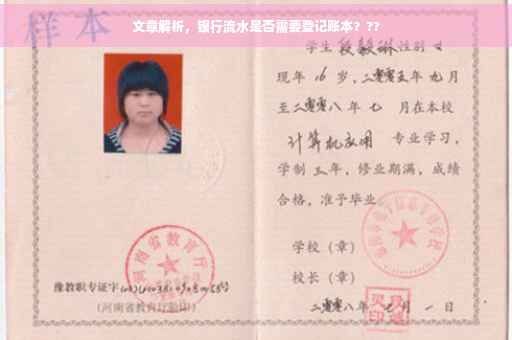 文章解析，银行流水是否需要登记账本？??
样本
学生段毅琳性别女
现年16岁，二零零五年九月
至二零零八年七月在本校
计算机应用 专业学习，
学制三年，修业期满，成绩
合格，准予毕业
学校（章）
校长（章）
二零零八年 月一日
河南省教育厅
豫教职专证字
（河南省教育厅验印）